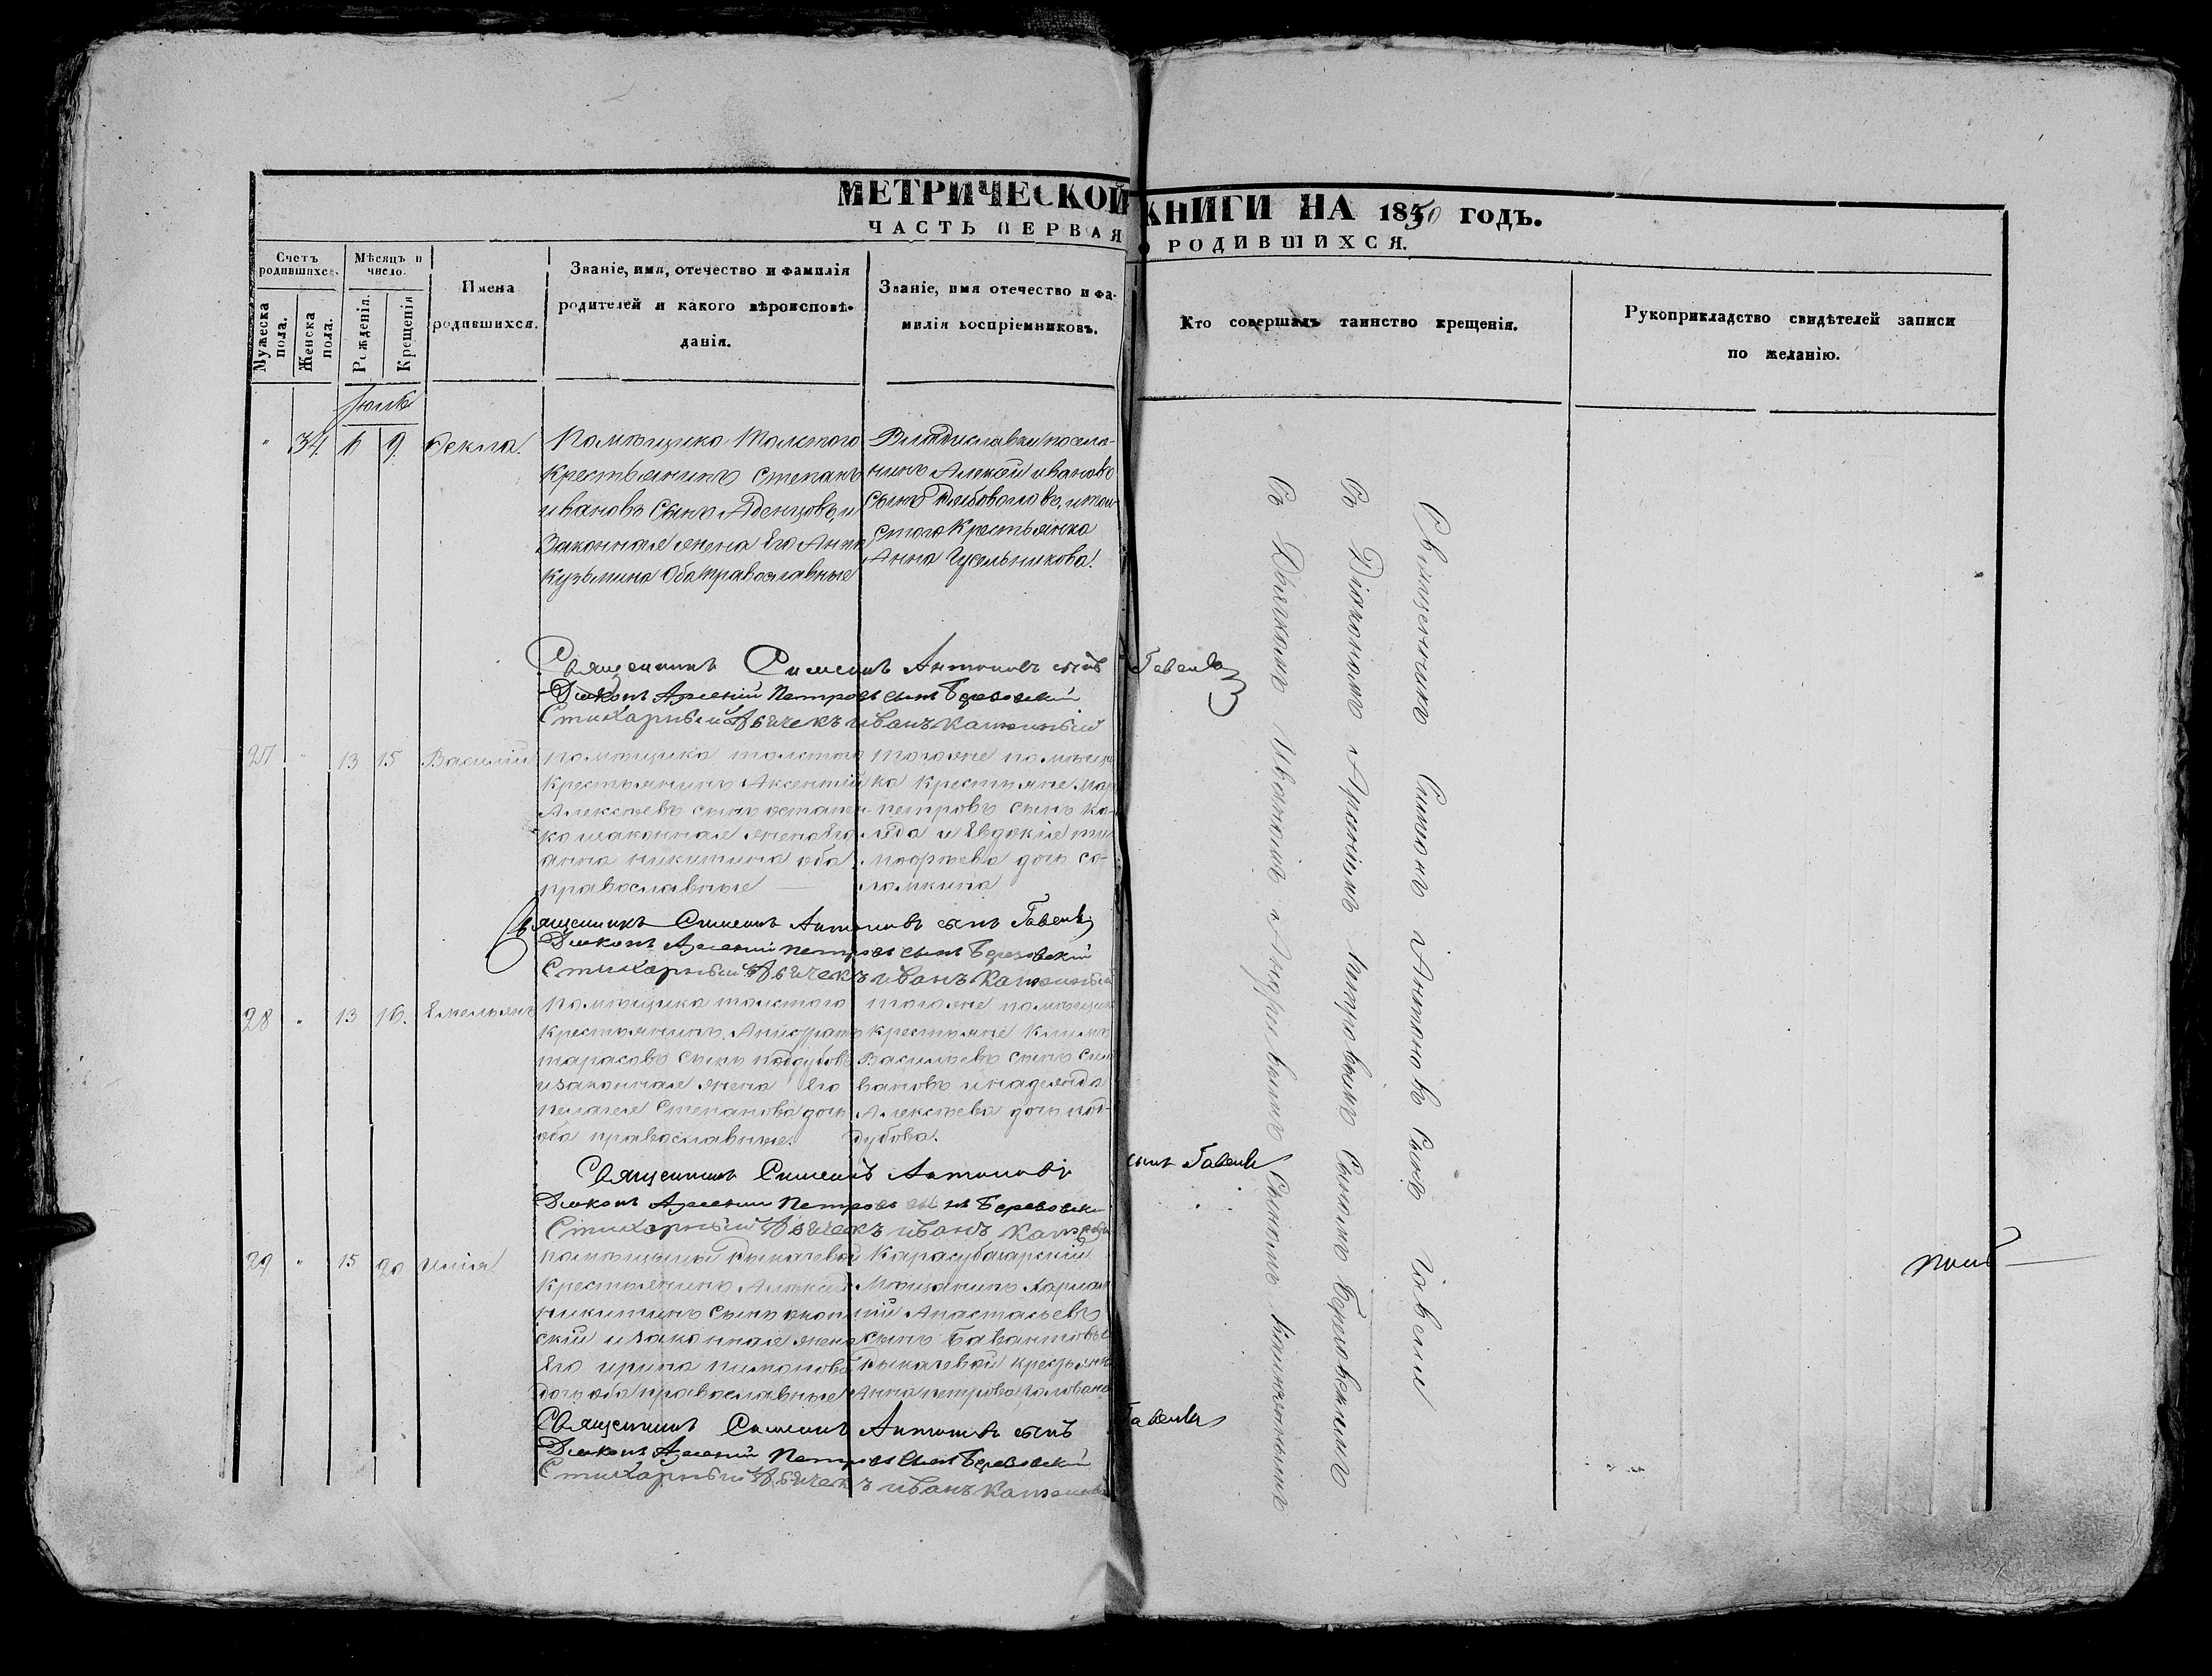 МЕТРИЧЕСКОЙ КНИГИ НА 1850 ГОДЪ.
ЧАСТЬ ПЕРВАЯ О РОДИВШИХСЯ.
Счетъ родившихся.
Мужеска пола.
Женска пола.
Мѣсяцъ и число.
Рожденія.
Крещенія
Имена родившихся.
Званіе, имя, отечество и фамилія
родителей и какого вѣроисповѣ-
данія.
Званіе, имя отечество и фа-
милія воспріемниковъ.
Кто совершалъ таинство крещенія.
Рукоприкладство свидѣтелей записи
по желанію.
34 6 9 Ѳекла.
Помѣщика Толстого
Крестьянинъ Степанъ
Ивановъ Сынъ и
Законная жена Его Анна
Кузьмина Оба православные
Владиславки поселя-
нинъ Алексѣй Ивановъ
Сынъ
Крестьянка
Анна Гусельникова.
Священникъ Симеонъ Антоновъ сынъ
Діаконъ Арсеній Петровъ сынъ Березовскій
Стихарный Дьячекъ Иванъ
27 " 13 15 Василій
помѣщика толстого
крестьянинъ Аксентій
Алексѣевъ сынъ остапен-
ко изаконная жена Его
анна никитина оба
православные
тогоже помѣщи
ка крестьяне
петровъ сынъ ко-
ляда и Евдокія ти
моѳѣева дочь со-
ломкина
Священникъ Симеонъ Антоновъ сынъ
Діаконъ Арсеній Петровъ сынъ Березовскій
Стихарный Дьячекъ Иванъ
28 " 13 16. Емельянъ
помѣщика толстого
крестьянинъ
тарасовъ сынъ поддубовъ
изаконная жена Его
пелагея Степанова дочь
оба православные.
тогоже помѣщик
крестьяне Климъ
Васильевъ сынъ Сели
вановъ инадежда
Алексѣева дочь под-
дубова.
Священникъ Симеонъ Антоновъ сынъ
Діаконъ Арсеній Петровъ сынъ Березовскій
Стихарный Дьячекъ Иванъ
29 " 15 20 Илія
помѣщицы
Крестьянинъ Алексѣй
никитинъ сынъ
скій изаконная жена
Его ирина пимонова
дочь оба православные
Карасубазарскій
Мѣщанинъ
Анастасьевъ
сынъ
крестьянк
Анна петрова
Священникъ Симеонъ Антоновъ сынъ
Діаконъ Арсеній Петровъ сынъ Березовскій
Стихарный Дьячекъ Иванъ
Священникъ Симеонъ Антоновъ Сынъ
Съ Діакономъ Арсеніемъ Петровымъ Сыномъ Березовскимъ
Съ Дьячкомъ Иваномъ Андреевымъ Сыномъ